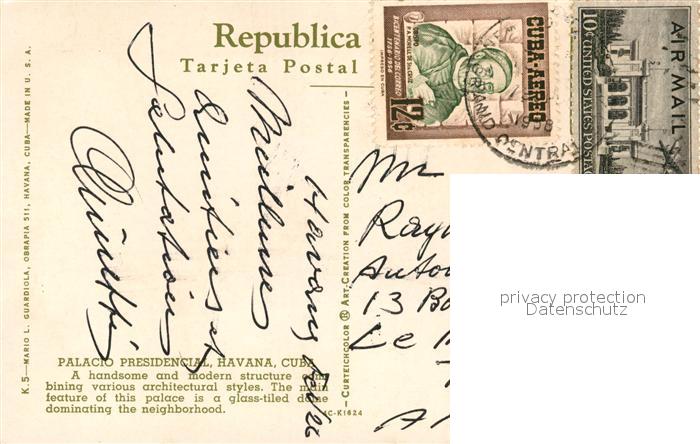 Republica
Tarjeta Postal
K.5—MARIO L. GUARDIOLA, OBRAPIA 511, HAVANA, CUBA—MADE IN U. S. A.
BICENTENARIO DEL CORREO
1756-1956
OBISPO
P.A. MORELL DE STA. CRUZ
CUBA-AEREO
12¢
1958
CENTRAL
AIR MAIL
10¢ UNITED STATES POSTAGE
Havana
Meilleures
Amitiés et
Salutations
—CURTEICHCOLOR ® ART-CREATION FROM COLOR TRANSPARENCIES—
Mr
Ray
Auto
13 Bo
Le
A
privacy protection
Datenschutz
PALACIO PRESIDENCIAL, HAVANA, CUBA
A handsome and modern structure com-
bining various architectural styles. The main
feature of this palace is a glass-tiled dome
dominating the neighborhood.
4C-K1624